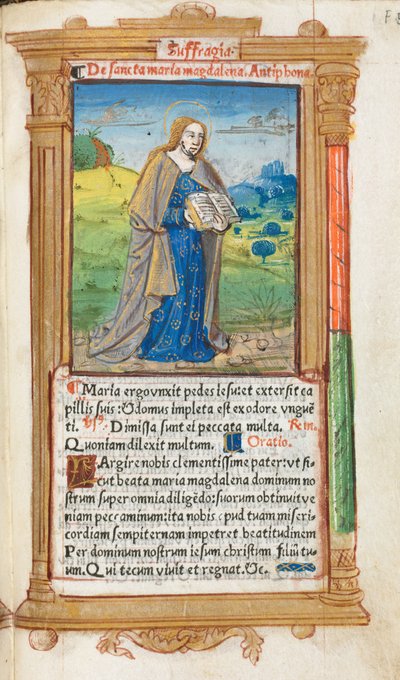 Suffragia.
¶ De sancta maria magdalena. Antiphona.
¶ Maria ergo vnxit pedes iesu: et extersit ca
pillis suis: & domus impleta est ex odore vnguē
ti. Vs. Dimissa sunt ei peccata multa. Rm.
Quoniam dilexit multum. Oratio.
LArgire nobis clementissime pater: vt si
cut beata maria magdalena dominum no
strum super omnia diligēdo: suorum obtinuit ve
niam peccaminum: ita nobis apud tuam miseri
cordiam sempiternam impetret beatitudinem
Per dominum nostrum iesum christum filiū tu
um. Qui tecum viuit et regnat. &c.